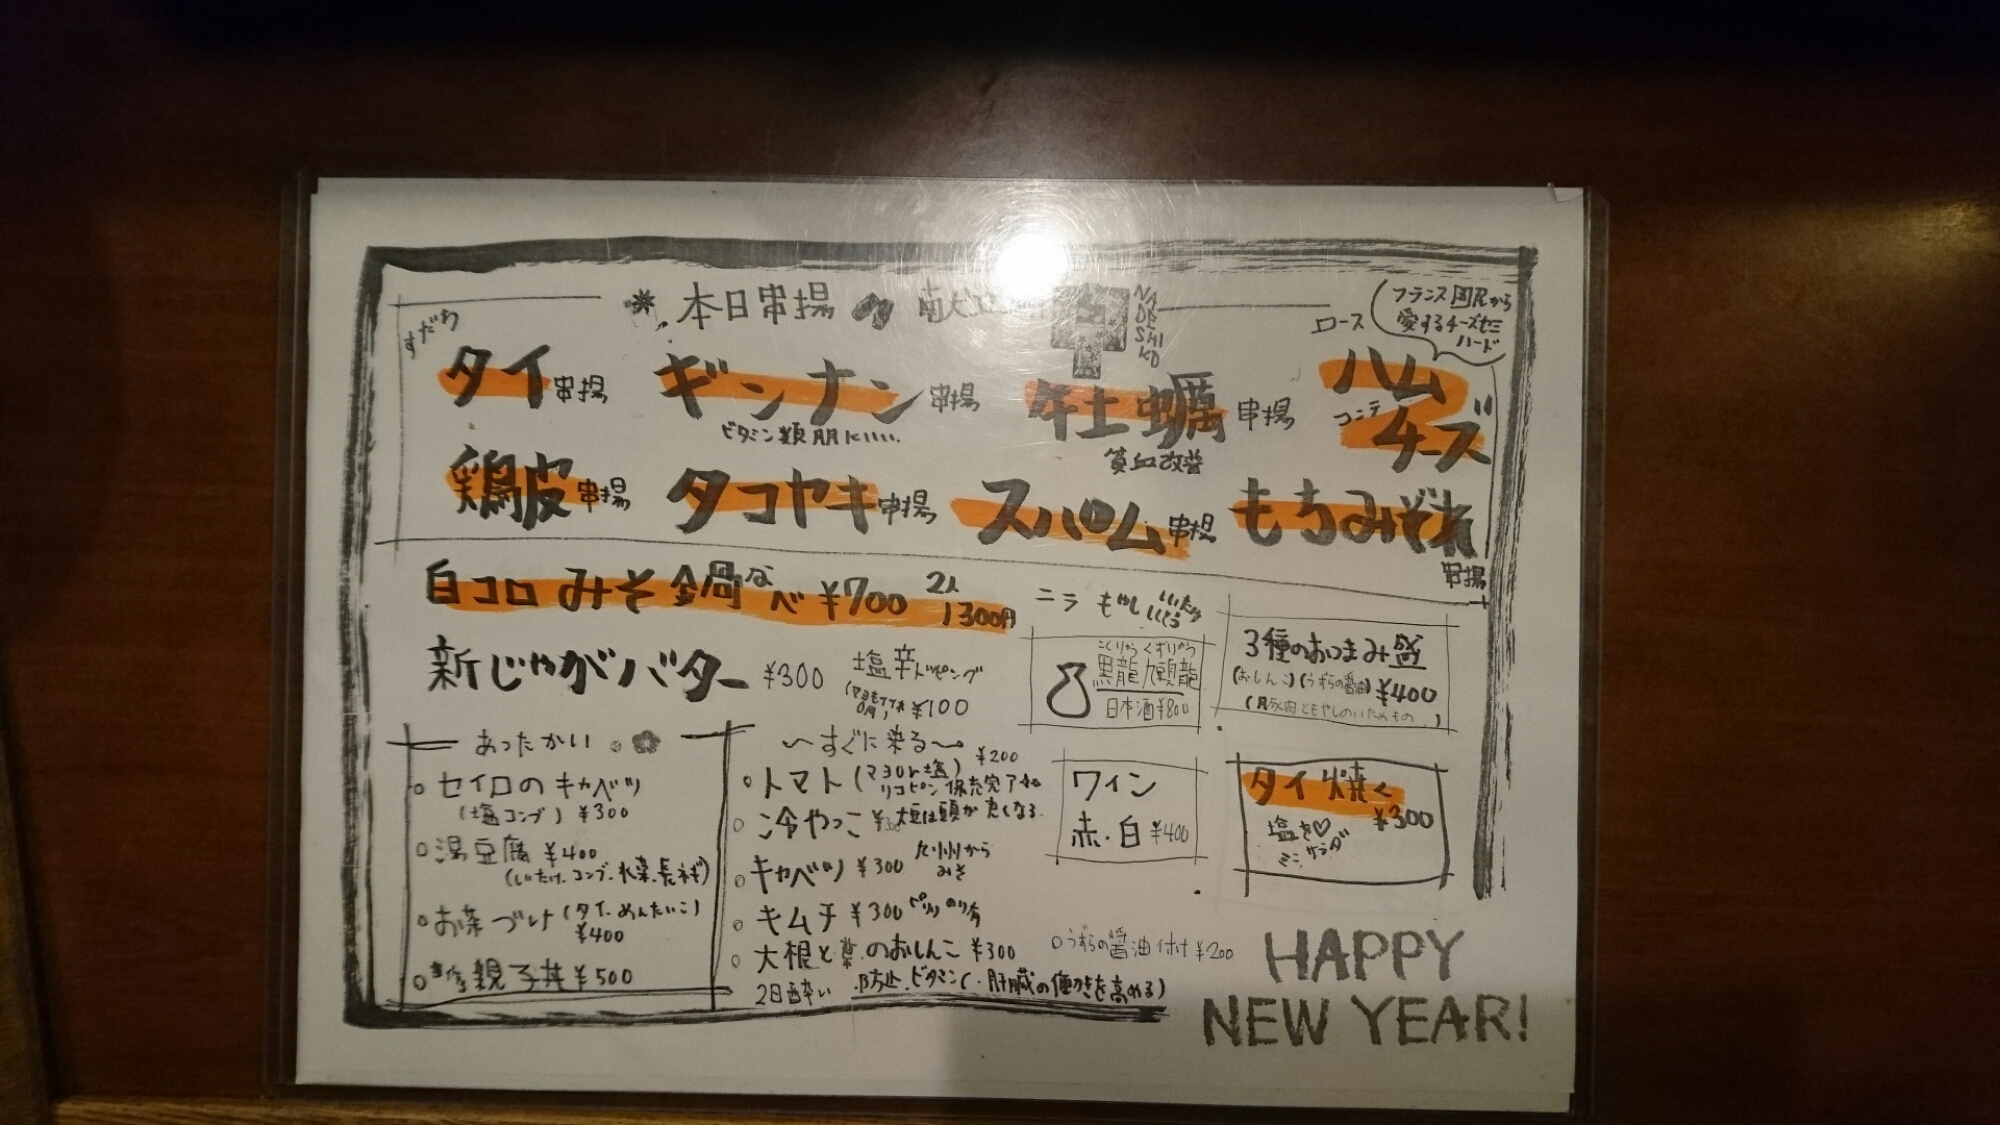 本日串揚の献立
NADESHIKO
すだち
タイ串揚
ギンナン串揚
ビタミン類肌にいい..
牡蠣串揚
貧血改善
フランス国民から
愛するチーズセミ
ハード
ロース
ハム
コンテ
チーズ
鶏皮串揚
タコヤキ串揚
スパム串揚
もちみぞれ
串揚
白コロみそ鍋なべ¥700 2人
1300円
ニラ もやし
新じゃがバター ¥300
塩辛トッピング
¥100
こくりゅう くずりゅう
黒龍 九頭龍
日本酒¥800
3種のおつまみ盛
(おしんこ)(うずらの醤油)¥400
(豚肉ともやしのいためもの)
あったかい
セイロのキャベツ
(塩コンブ) ¥300
湯豆腐 ¥400
(しいたけ.コンブ.水菜.長ネギ)
お茶づけ(タイ.めんたいこ)
¥400
親子丼¥500
〜すぐに来る〜
トマト(マヨor塩) ¥200
リコピン
冷やっこ
キャベツ ¥300 九州から
みそ
キムチ ¥300 ピリリのり有
大根と葉のおしんこ ¥300
2日酔い防止.ビタミンC.肝臓の働きを高める)
うずらの醤油付け¥200
ワイン
赤・白¥400
タイ焼く
¥300
塩を♡
ミニサラダ
HAPPY
NEW YEAR!